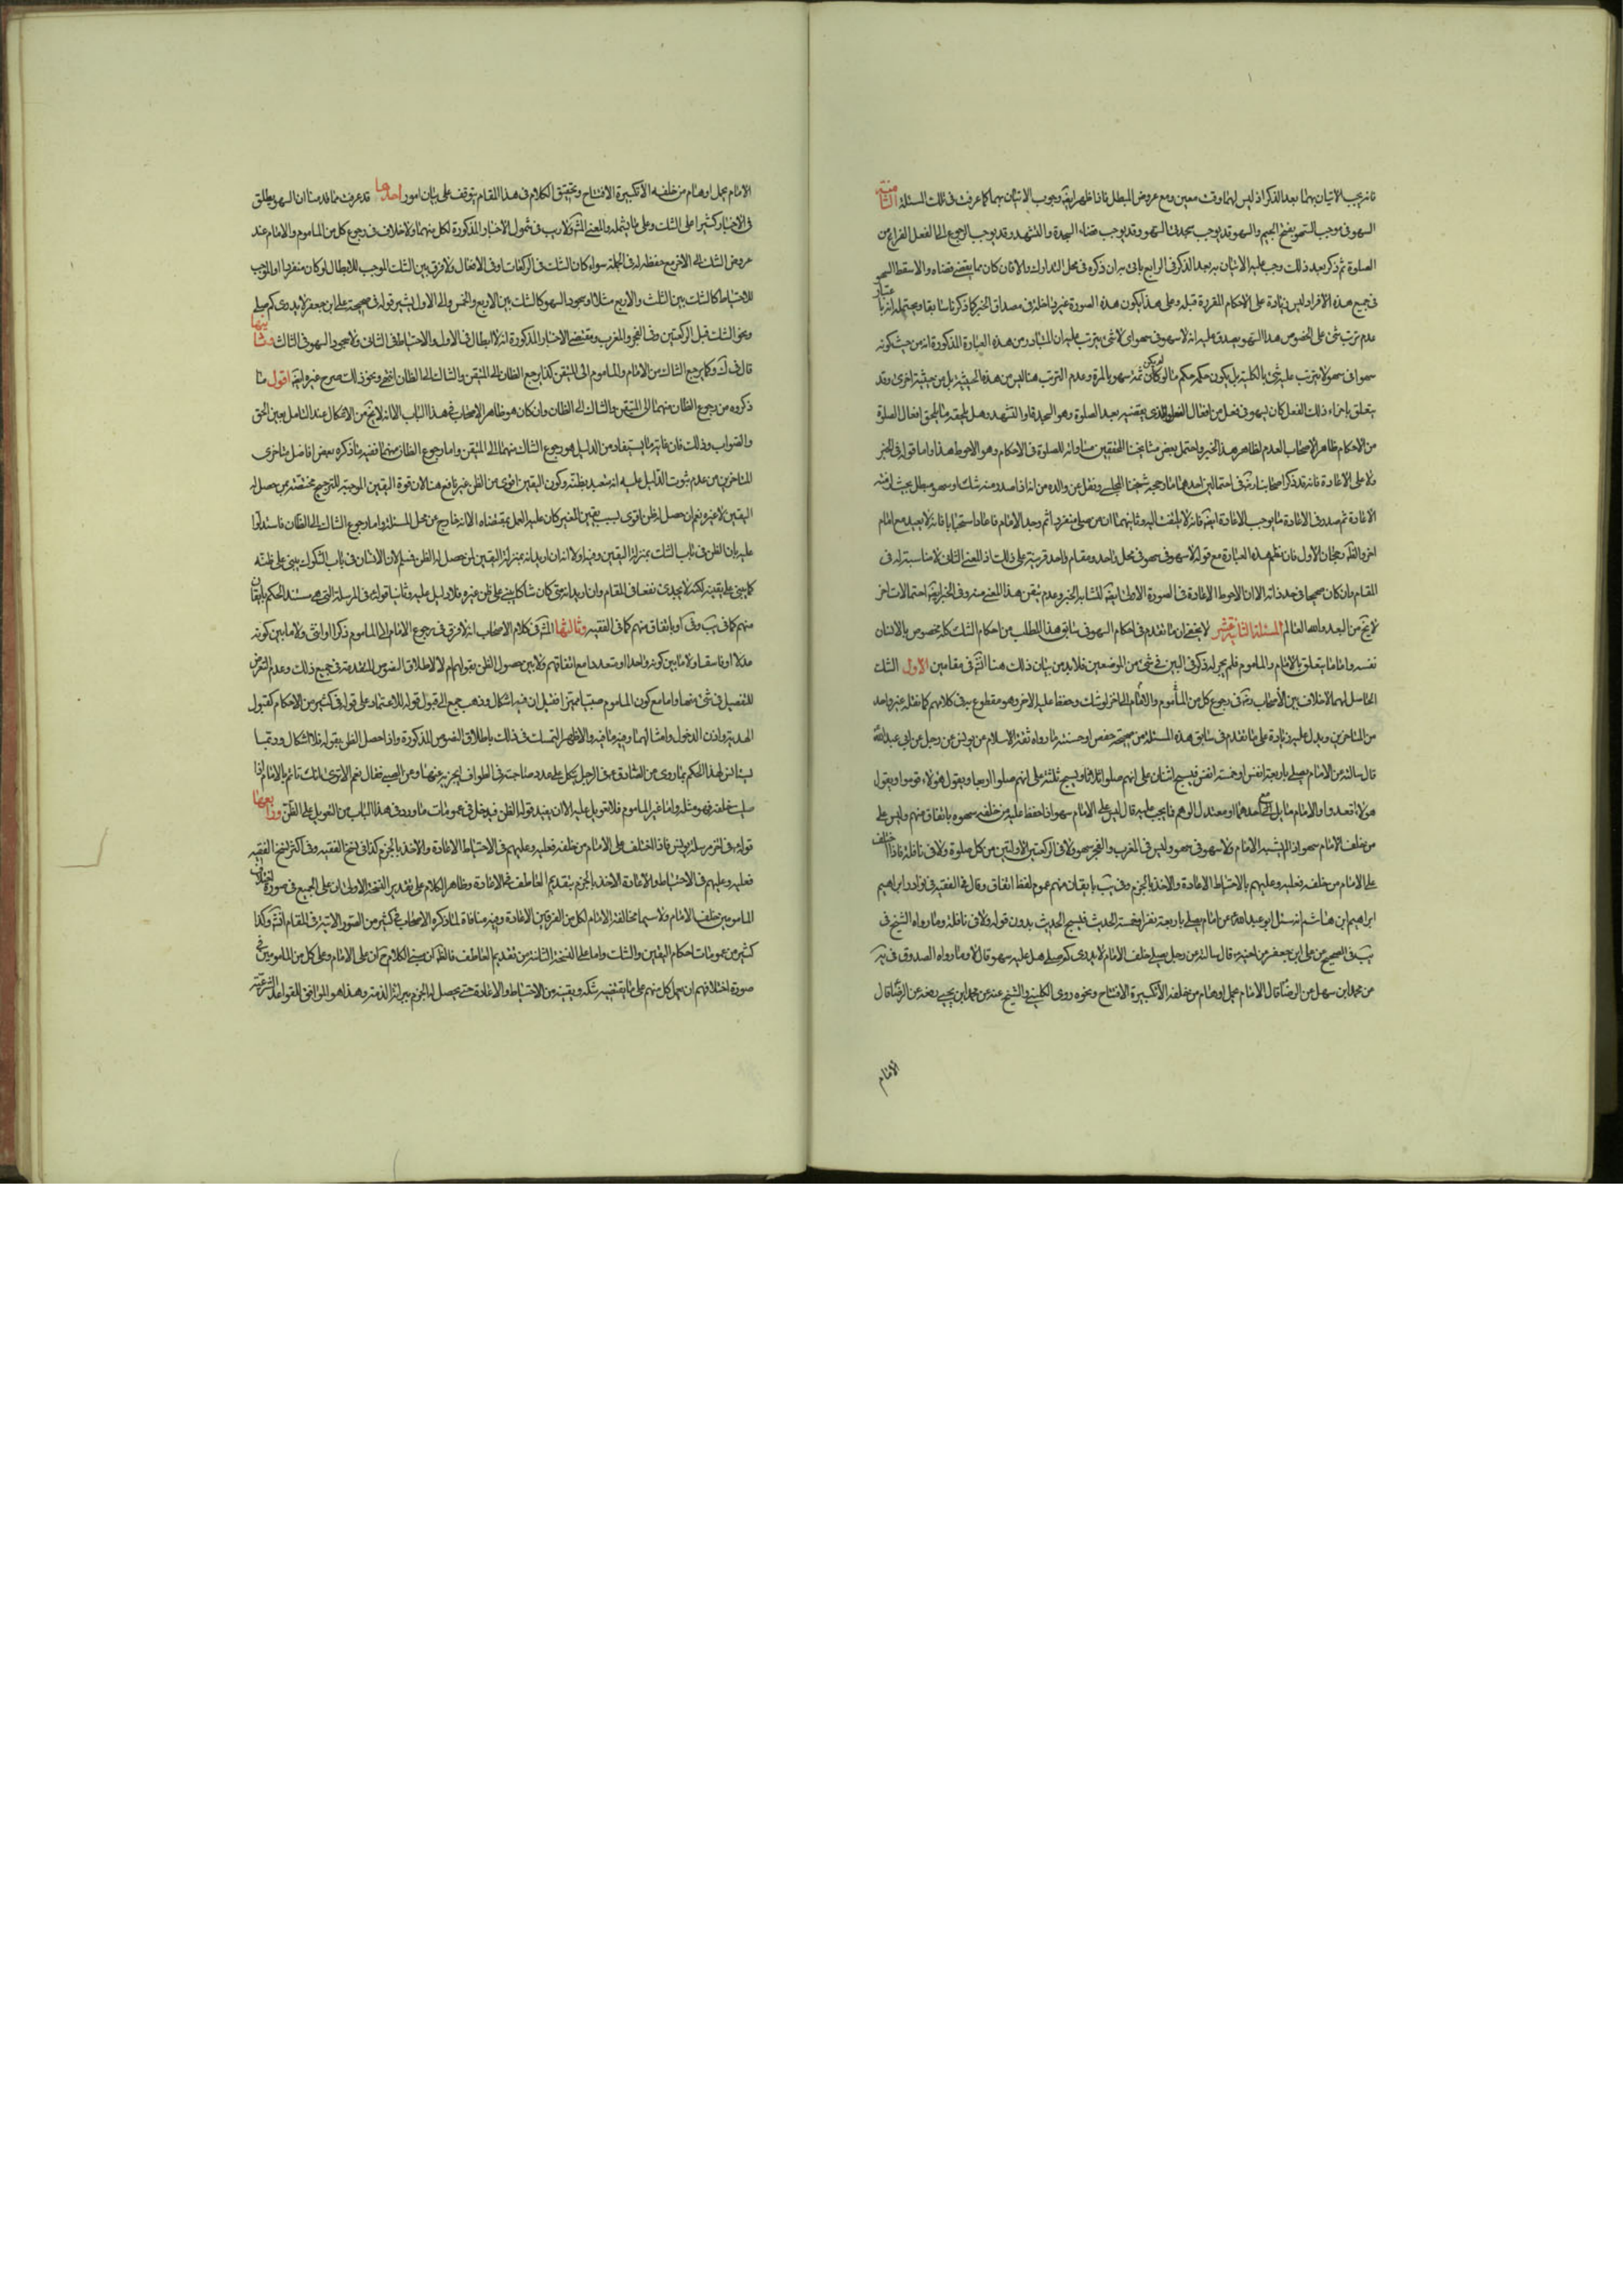 فانه يجب الاتيان بهما بعد الذكر اذ ليس لهما وقت معين ومع عروض المبطل فاذا ظهر ايضا وجوب الاتيان بهما كما عرفت في تلك المسئلة الثامنة
السهو في موجب السهو بفتح الجيم والسهو قد يوجب سجدتي السهو وقد يوجب قضاء السجدة والتشهد وقد يوجب الرجوع الى الفعل الفراغ من
الصلوة ثم ذكر بعد ذلك وجب عليه الاتيان به بعد الذكر في الرابع ياتي به ان ذكره في محل التدارك والا فان كان مما يقضى قضاه والا سقط
في جميع هذه الافراد ليس زيادة على الاحكام المقررة قبله وعلى هذا يكون هذه الصورة غير داخلة في مصداق الخبر كما ذكرنا سابقا ويحتمل انه باعتبار
عدم ترتب شئ على الخصوص هذا السهو يصدق عليه انه لا سهو في سهو اي لا شئ يترتب عليه ان المتبادر من هذه العبارة المذكورة انه من حيث كونه
سهوا في سهو لا يترتب عليه شئ بالكلية بل يكون حكمه حكم ما لو لم يكن ثمة سهو بالمرة وعدم الترتب هنا ليس من هذه الحيثية بل من حيثية اخرى وقد
يتعلق باجزاء ذلك الفعل كان يسهو في فعل من افعال الفعل الذي يقضيه بعد الصلوة وهو السجدة او التشهد وهل يلحقه ما يلحق افعال الصلوة
من الاحكام ظاهر الاصحاب العدم لظاهر هذا الخبر واحتمل بعض مشايخنا المحققين مساواته للصلوة في الاحكام وهو الاحوط هذا واما قوله في الخبر
ولا على الاعادة اعادة فقد ذكر اصحابنا رض في احتمالين احدهما ما رجحه شيخنا المجلسي ونقل عن والده من انه اذا صدر منه شك او سهو مبطل بحيث لزمته
الاعادة ثم صدر في الاعادة ما يوجب الاعادة ايضا فانه لا يلتفت اليه وثانيهما ان من صلى منفردا ثم وجد الامام فاعاد استحبابا فانه لا يعيد مع امام
اخر والظ رجحان الاول فان نظم هذه العبارة مع قوله لا سهو في سهو في محل واحد ومقام واحد قرينة على ذلك اذ المعنى الثاني لا مناسبة له في
المقام وان كان صحيحا في حد ذاته الا ان الاحوط الاعادة في الصورة الاولى ايضا لتشابه الخبر وعدم تيقن هذا المعنى منه وفي الخبر ايضا احتمالات اخر
لا تخ من البعد والله العالم المسئلة الثانية عشر لا يخفى ان ما تقدم في احكام السهو في سابق هذا المطلب من احكام الشك كله مخصوص بالانسان
نفسه واما ما يتعلق بالامام والماموم فلم يجر له ذكر في البين في شئ من الموضعين فلا بد من بيان ذلك هنا الله في مقامين الاول الشك
الحاصل لهما لا خلاف بين الاصحاب رض في رجوع كل من المأموم والامام الى الاخر لو شك وحفظ عليه الاخر وهو مقطوع به في كلامهم كما نقله غير واحد
من المتاخرين ويدل عليه زيادة على ما تقدم في سابق هذه المسئلة من صحيحة حفص او حسنته ما رواه ثقة الاسلام عن يونس عن رجل عن ابي عبد الله
قال سالته عن الامام يصلي باربعة انفس او خمسة انفس فيسبح اثنان على انهم صلوا ثلاثا ويسبح ثلثة على انهم صلوا اربعا ويقول هؤلاء قوموا ويقول
هؤلاء اقعدوا والامام مايل مع احدهما او معتدل الوهم فما يجب عليه قال ليس على الامام سهو اذا حفظ عليه من خلفه سهوه باتفاق منهم وليس على
من خلف الامام سهو اذا لم يسه الامام ولا سهو في سهو وليس في المغرب والفجر سهو ولا في الركعتين الاولتين من كل صلوة ولا في نافلة فاذا اختلف
على الامام من خلفه فعليه وعليهم بالاحتياط الاعادة والاخذ بالجزم وفي يب بايقان منهم عوض لفظ اتفاق وقال في الفقيه في نوادر ابراهيم
ابراهيم ابن هاشم انه سئل ابو عبد الله عن امام يصلي باربعة نفر او خمسة الحديث فيسبح الحديث بدون قوله ولا في نافلة وما رواه الشيخ في
يب في الصحيح عن علي ابن جعفر عن اخيه قال سالته عن رجل يصلي خلف الامام لا يدري كم صلى هل عليه سهو قال لا وما رواه الصدوق في يه
عن محمد ابن سهل عن الرضا قال الامام يحمل اوهام من خلفه الا تكبيرة الافتتاح ونحوه روى الكليني والشيخ عنه عن محمد ابن يحيى رفعه عن الرضا قال
الامام
الامام يحمل اوهام من خلفه الا تكبيرة الافتتاح وتحقيق الكلام في هذا المقام يتوقف على بيان امور احدها قد عرفت مما قدمنا ان السهو يطلق
في الاخبار كثيرا على الشك وعلى ما يشمله والمعنى المش ولا ريب في شمول الاخبار المذكورة لكل منهما ولا خلاف في رجوع كل من الماموم والامام عند
عروض الشك الى الاخر مع حفظه له في الجملة سواء كان الشك في الركعات او في الافعال ولا فرق بين الشك الموجب للابطال لو كان منفردا او الموجب
للاحتياط كالشك بين الثلث والاربع مثلا او سجود السهو كالشك بين الاربع والخمس والى الاول يشير قوله في صحيحة علي ابن جعفر لا يدري كم صلى
ونحو الشك قبل الركعتين وفي الفجر والمغرب ومقتضى الاخبار المذكورة انه لا ابطال في الاول ولا احتياط في الثاني ولا سجود السهو في الثالث وثانيها
قال في ك وكما يرجع الشاك من الامام والماموم الى المتيقن كذا يرجع الظان الى المتيقن والشاك الى الظان انتهى ونحو ذلك صرح غيره ايضا اقول ما
ذكروه من رجوع الظان منهما الى المتيقن والشاك الى الظان وان كان هو ظاهر الاصحاب في هذا الباب الا انه لا يخ من الاشكال عند التامل بعين الحق
والصواب وذلك فان غاية ما يستفاد من الدليل هو رجوع الشاك منهما الى المتيقن واما رجوع الظان منهما ففيه ما ذكره بعض افاضل متاخري
المتاخرين من عدم ثبوت الدليل عليه انه متعبد بظنه وكون اليقين اقوى من الظن غير نافع هنا لان قوة اليقين الموجبة للترجيح مختصة بمن حصل له
اليقين لا غيره نعم ان حصل له ظن اقوى بسبب يقين الغير كان عليه العمل بمقتضاه الا انه خارج عن محل المسئلة واما رجوع الشاك الى الظان فاستدلوا
عليه بان الظن في باب الشك بمنزلة اليقين وفيه اولا انه ان اريد انه بمنزلة اليقين لمن حصل له الظن فمسلم لان الانسان في باب الشكوك يبني على ظنه
كما يبني على يقينه لكنه لا يجدي نفعا في المقام وان اريد انه متى كان شاكا يبني على ظن غيره فلا دليل عليه وثانيا قوله في المرسلة التي هي مستند الحكم بايقان
منهم كما في يب وفي كا وباتفاق منهم كما في الفقيه وثالثها المش في كلام الاصحاب انه لا فرق في رجوع الامام الى الماموم ذكرا او انثى ولا ما بين كونه
عدلا او فاسقا ولا ما بين كونه واحدا او متعددا مع اتفاقهم ولا بين حصول الظن بقولهم ام لا لاطلاق النصوص المتقدمة في جميع ذلك وعدم التعرض
للتفصيل في شئ منها واما مع كون الماموم صبيا مميزا فقيل ان فيه اشكال وذهب جمع الى قبول قوله للاعتماد على قوله في كثير من الاحكام كقبول
الهدية واذن الدخول وامثالهما وفيه ما فيه والاظهر التمسك في ذلك باطلاق النصوص المذكورة واذا حصل الظن بقوله فلا اشكال وربما
يستانس لهذا الحكم بما روي عن الصادق ع في الرجل يتكل على عدد صاحبته في الطواف ايجزيه عنها وعن الصبي فقال نعم الا ترى انك تاتم بالامام اذا
صليت خلفه فهو مثله واما غير الماموم فلا تعويل عليه الا ان يفيد قوله الظن فيدخل في عمومات ما ورد في هذا الباب من التعويل على الظن ورابعها
قوله في اخر مرسلة يونس فاذا اختلف على الامام من خلفه فعليه وعليهم في الاحتياط الاعادة والاخذ بالجزم كذا في نسخ الفقيه وفي اكثر نسخ الفقيه
فعليه وعليهم في الاحتياط والاعادة الاخذ بالجزم بتقديم العاطف على الاعادة وظاهر الكلام على تقدير النسخة الاولى ان على الجميع في صورة اختلاف
المامومين خلف الامام ولا سيما مخالفة الامام لكل من الفرقين الاعادة وفيه منافاة لما ذكره الاصحاب في كثير من الصور الاتية في المقام انش وكذا
كثير من عمومات احكام اليقين والشك واما على النسخة الثانية من تقديم العاطف فالظ ان معنى الكلام ح ان على الامام وعلى كل من المامومين في
صورة اختلافهم ان يعمل كل منهم على ما يقتضيه شكه ويقينه من الاحتياط والاعادة حتى يحصل له الجزم ببرائة الذمة وهذا هو الموافق للقواعد الشرعية